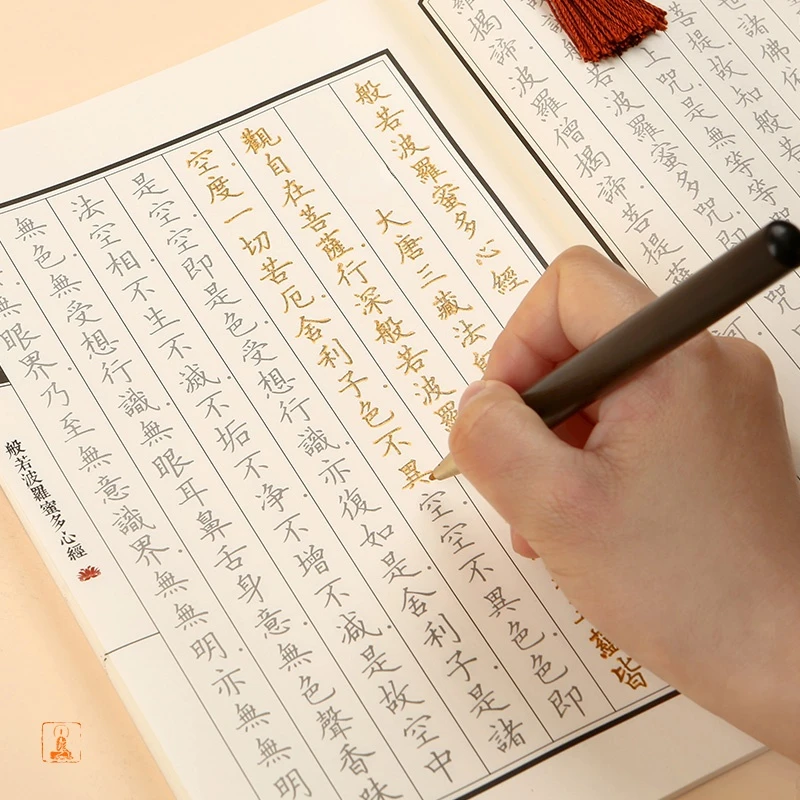 諸佛依
菩提.故知般若
上咒.是無等等咒
若波羅蜜多咒.即
羅揭諦.波羅僧揭諦.菩提薩
般若波羅蜜多心經
大唐三藏法
觀自在菩薩.行深般若波羅 蘊皆
空.度一切苦厄.舍利子.色不異空.空不異色.色即
是空.空即是色.受想行識.亦復如是.舍利子.是諸
法空相.不生不滅.不垢不淨.不增不減.是故空中
無色.無受想行識.無眼耳鼻舌身意.無色聲香味
無眼界.乃至無意識界.無無明.亦無無明
般若波羅蜜多心經